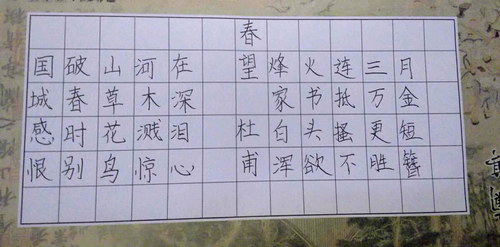 春望
杜甫
国破山河在
城春草木深
感时花溅泪
恨别鸟惊心
烽火连三月
家书抵万金
白头搔更短
浑欲不胜簪